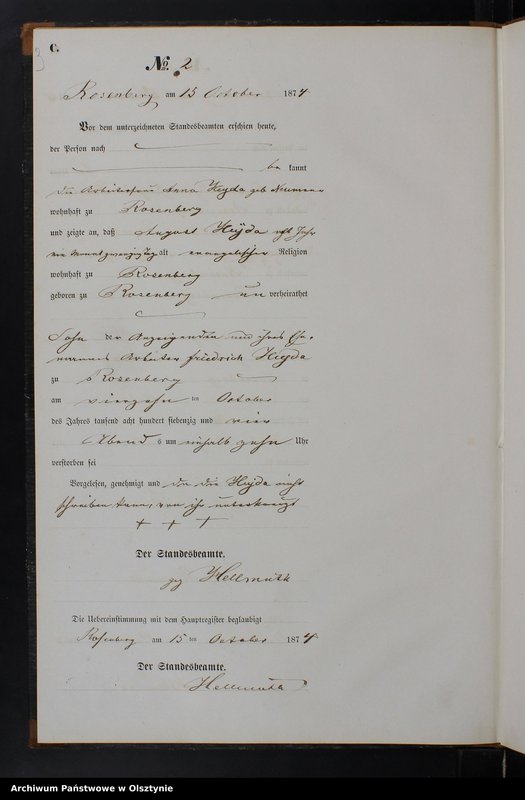 C.
3
No. 2
Rosenberg am 15 October 1874
Vor dem unterzeichneten Standesbeamten erschien heute,
der Person nach
be kannt
die Arbeiterfrau Anna Heyda geb Neumann
wohnhaft zu Rosenberg
und zeigte an, daß August Heyda acht Jahr
ein Monat zwanzig Tag alt evangelischer Religion
wohnhaft zu Rosenberg
geboren zu Rosenberg un verheirathet
Sohn der Anzeigenden und ihres Ehe-
mannes Arbeiter Friedrich Heyda
zu Rosenberg
am vierzehn ten October
des Jahres tausend acht hundert siebenzig und vier
Abend s um einhalb zehn Uhr
verstorben sei
Vorgelesen, genehmigt und da die Heyda nicht
schreiben kann, von ihr unterkreuzt
+ + +
Der Standesbeamte.
gez Hellmuth
Die Uebereinstimmung mit dem Hauptregister beglaubigt
Rosenberg am 15 ten October 1874
Der Standesbeamte.
Hellmuth
Archiwum Państwowe w Olsztynie